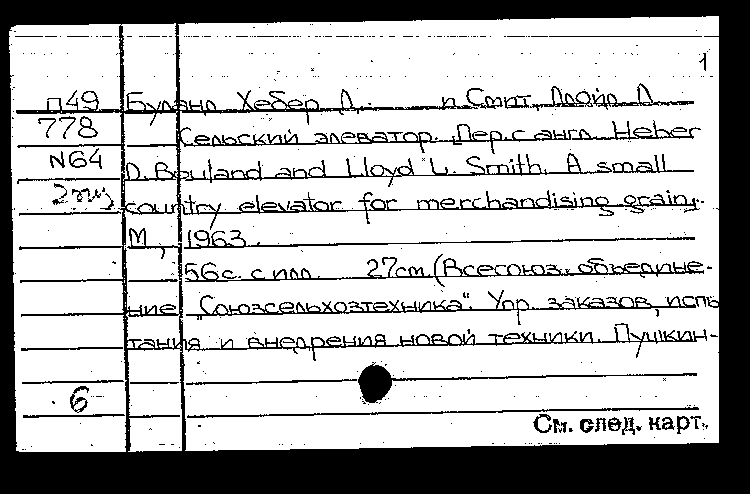 1
П49 Буланд Хебер Д. и Смит, Ллойд Л
778 Сельский элеватор. Пер. с англ. Heber
N64 D. Bouland and Lloyd L. Smith. A small
country elevator for merchandising grain.
М, 1963.
56с. с илл. 27см. (Всесоюз. объедине-
ние "Союзсельхозтехника". Упр. заказов, испы
тания и внедрения новой техники. Пушкин-
6
См. след. карт.